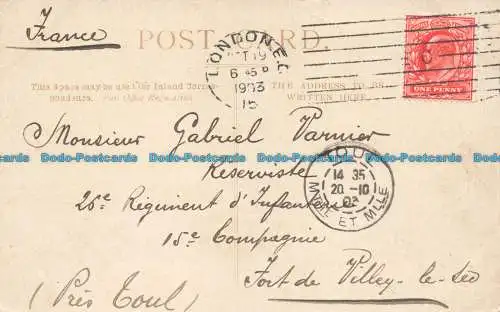 France
POST CARD.
LONDON.E.C.
6 45 P
1903
15
ONE PENNY
This space may be used for Inland Corres-
pondence.
THE ADDRESS TO BE
WRITTEN HERE.
Monsieur Gabriel Varnier
Réserviste
26e Régiment d'Infanterie
15e Compagnie
Fort de Villey-le-Sec
(Près Toul)
TOUL
14 35
20 -10
03
MRTHE ET MLLE
Dodo-Postcards Dodo-Postcards Dodo-Postcards Dodo-Postcards Dodo-Postcards